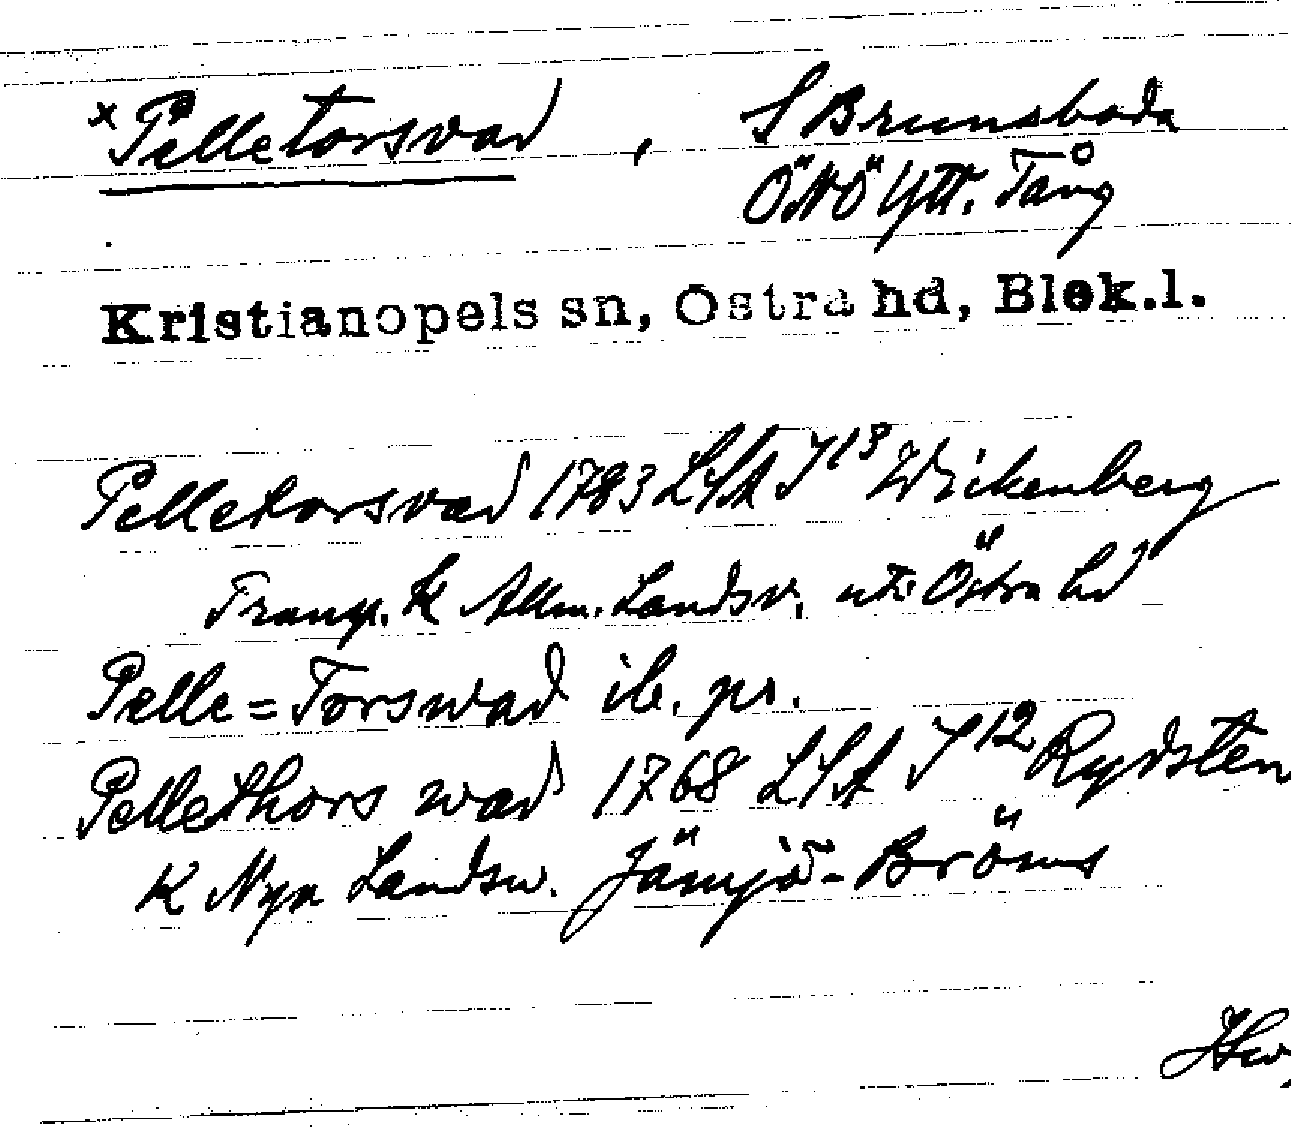 x Pelletorsvad, S Brunsboda
ÖNÖ Ytt. Tång
Kristianopels sn, Östra hd, Blek.l.
Pelletorsvad 1783 LSA J13 Wickenberg
Transp. K Allm. Landsv. uti Östra hd
Pelle=Torswad ib. pr.
Pellethors wad 1768 LSA J12 Rydsten
K Nya Landsw. Jämjö-Bröms